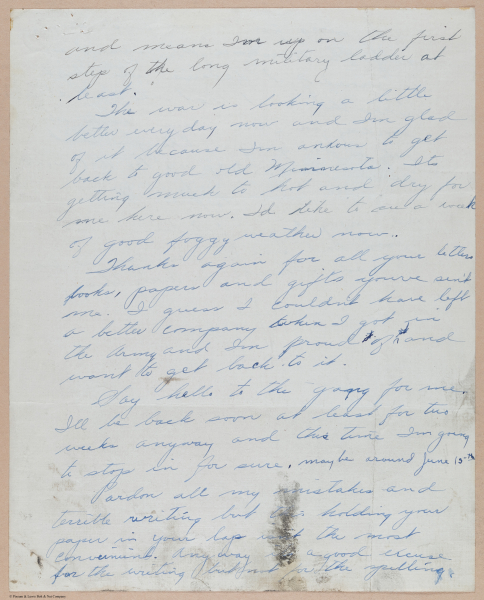 and means I'm up on the first
step of the long military ladder at
least.
The war is looking a little
better everyday now and I'm glad
of it because I'm anxious to get
back to good old Minnesota. Its
getting much to hot and dry for
me here now. I'd like to see a week
of good foggy weather now.
Thanks again for all your letters
books, papers and gifts youv'e sent
me. I guess I couldn't have left
a better company when I got in
the Army and I'm proud of and
want to get back to it.
Say hello to the gang for me.
I'll be back soon at least for two
weeks anyway and this time I'm going
to stop in for sure, maybe around June 15th
Pardon all my mistakes and
terrible writing but holding your
paper in your lap isn't the most
convenient. Anyway a good excuse
for the writing but not for the spelling